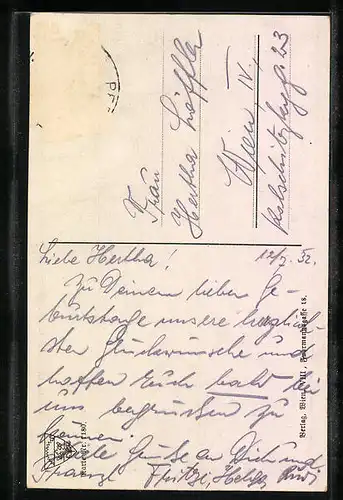 Frau
Hertha Löffler
Wien IV.
Kolschitzkyg. 23
Liebe Hertha!
12/ 32.
Zu Deinem lieben Ge-
burtstage unsere herzlich-
sten Glückwünsche und
hoffen Euch bald bei
uns begrüssen zu
können.
Viele Grüße an Dich und
Franz Fritzi, Helga, Rudi
Verlag, Wien, VIII.,